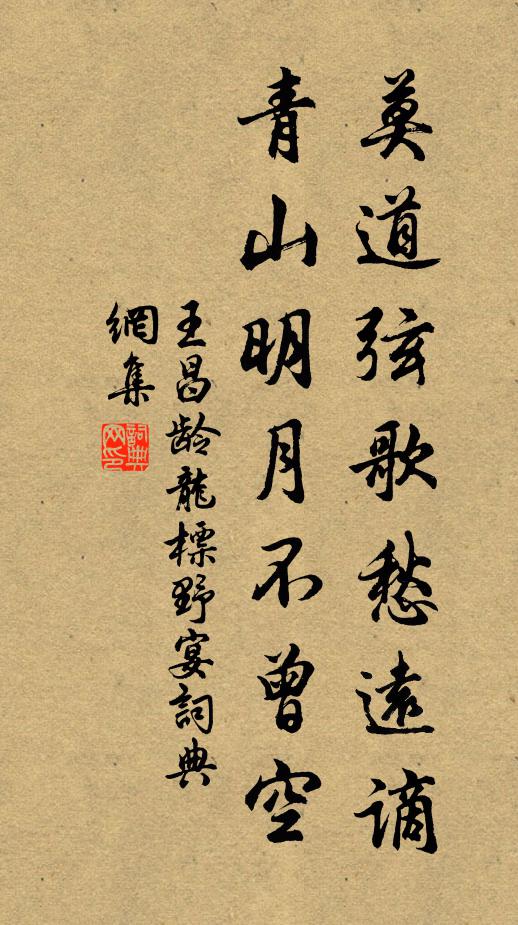 莫道弦歌愁遠謫
青山明月不曾空
王昌齡龍標野宴詞典
網集
詞典
网印